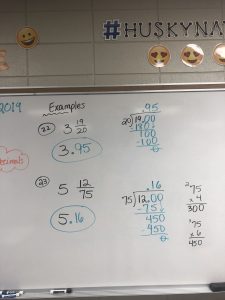 #HUSKYNA
2019
Examples
22 3 19/20
3.95
.95
20 19.00
180
100
-100
0
ecimals
23 5 12/75
5.16
.16
75 12.00
-75
450
-450
0
2
75
x 4
300
3
75
x 6
450